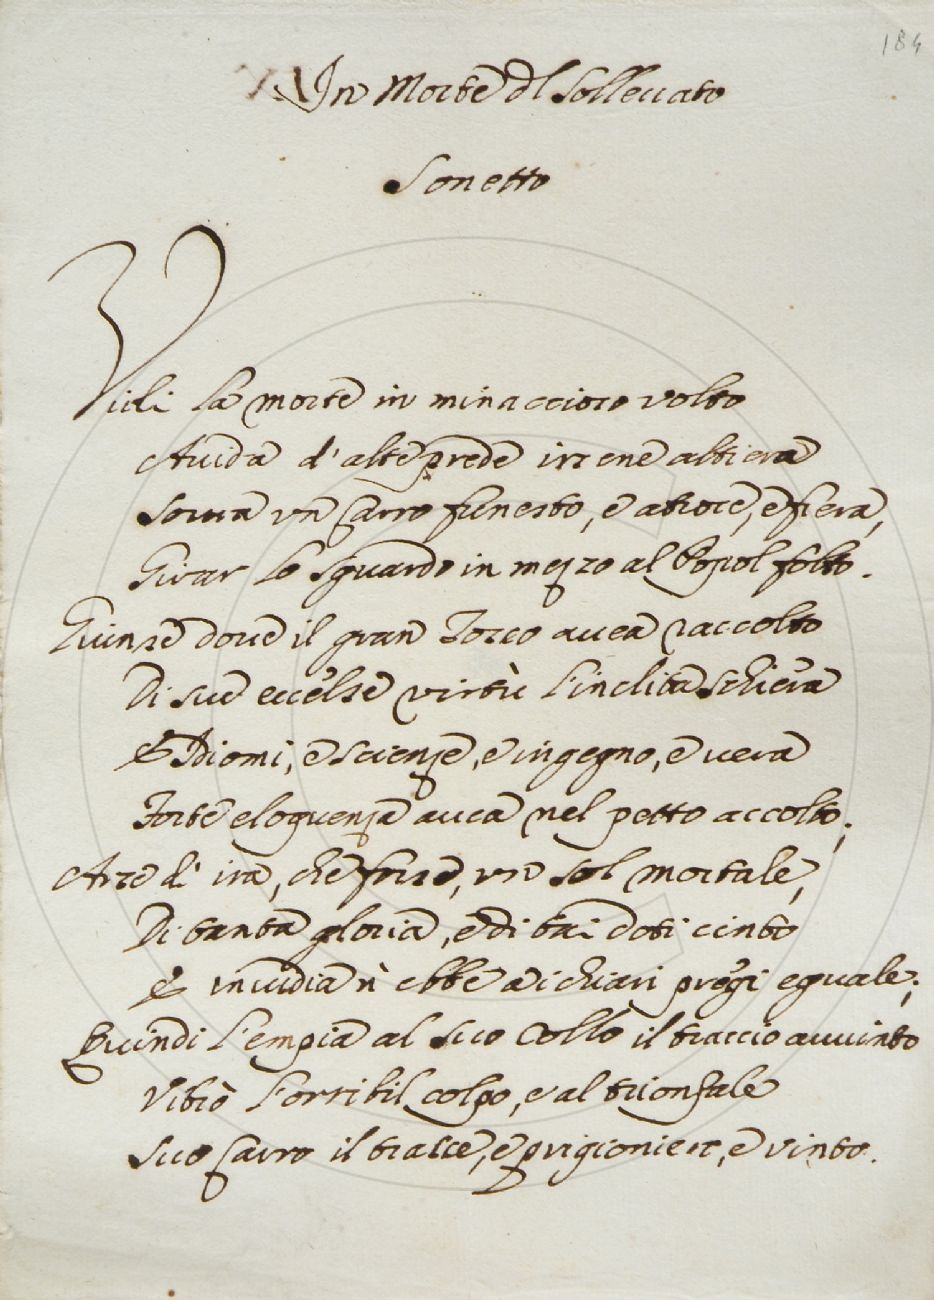 184
In Morte dl Sollecato
Sonetto
Vidi la morte in minaccioso volto
Auida d'alte prede irsene altiera
Soura un Carro funesto, e atroce, e fiera,
Girar lo sguardo in mezzo al Popol folto.
Giunse doue il gran Tosco auea raccolto
Di sue eccelse virtù l'inclita schiera
E Idiomi, e scienze, e ingegno, e uera
Forte eloquenza auea nel petto accolto;
Arse di ira, che fosse, un sol mortale,
Di tanta gloria, e di tai doti cinto
E inuidia n' ebbe a i chiari pregi eguale;
Quindi l'empia al suo Collo il braccio auuinto
Vibrò l'orribil colpo, e al trionfale
Suo Carro il trasse, e prigioniero, e vinto.